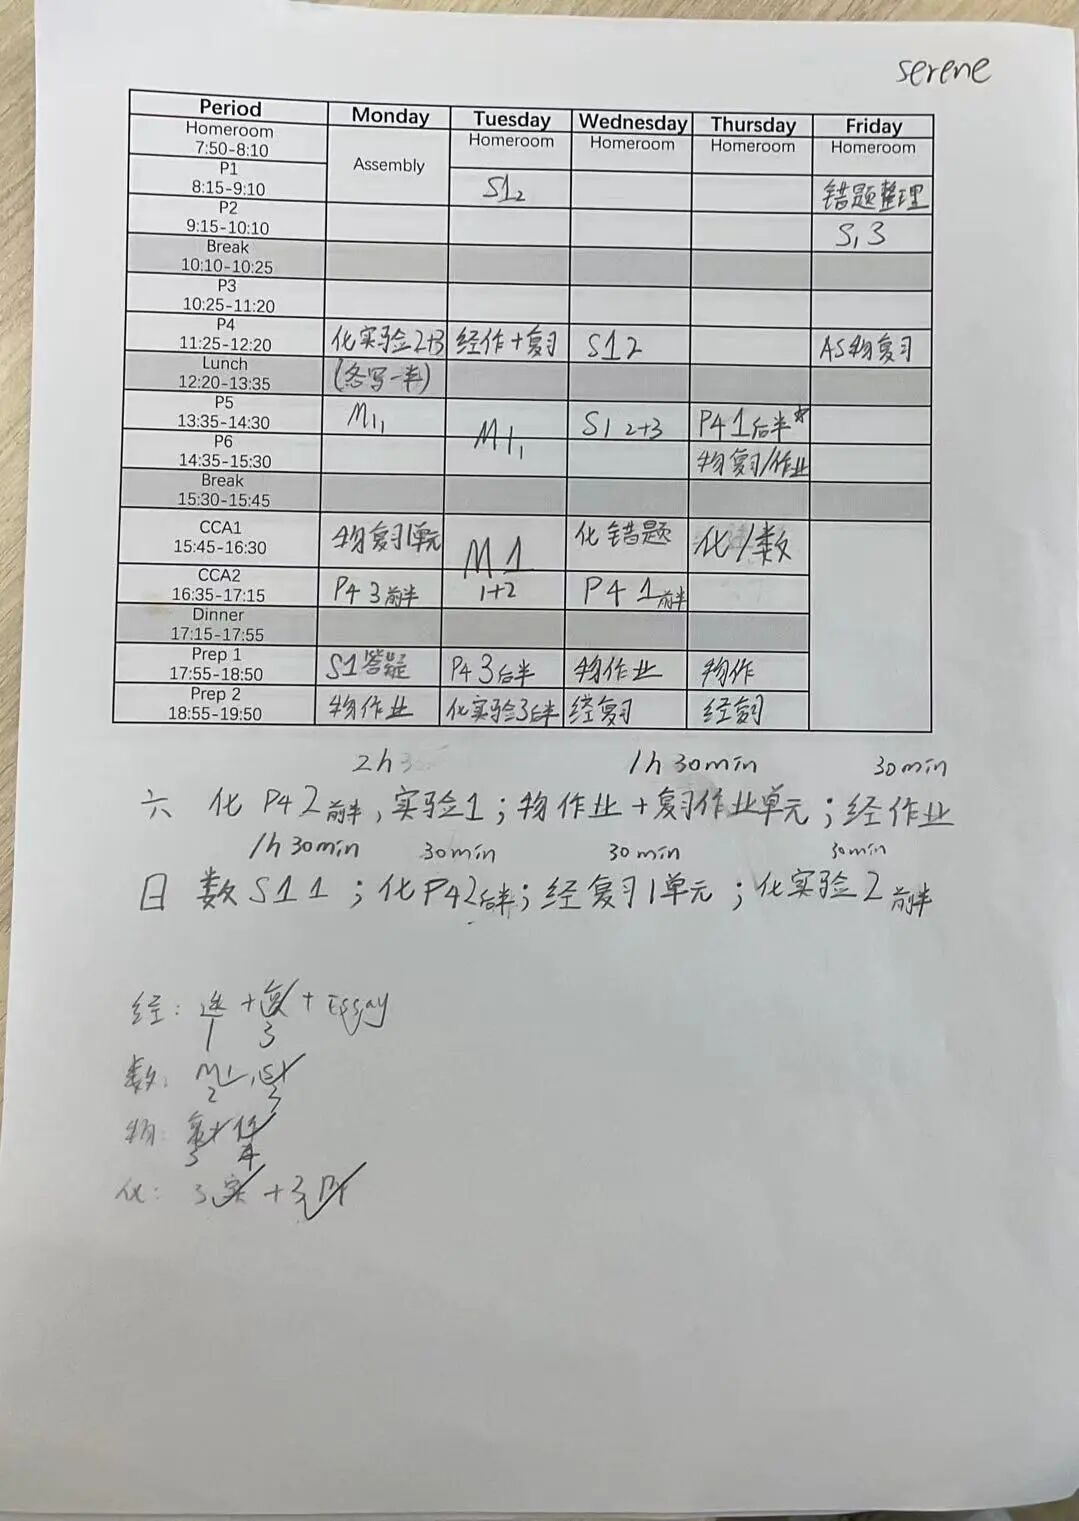 serene
Period Monday Tuesday Wednesday Thursday Friday
Homeroom 7:50-8:10 Assembly Homeroom Homeroom Homeroom Homeroom
P1 8:15-9:10 S12 错题整理
P2 9:15-10:10 S,3
Break 10:10-10:25
P3 10:25-11:20
P4 11:25-12:20 化实验2+3 经作+复习 S12 AS物复习
Lunch 12:20-13:35 (各写一半)
P5 13:35-14:30 M1, M1, S1 2+3 P4 1后半*
P6 14:35-15:30 物复习/作业
Break 15:30-15:45
CCA1 15:45-16:30 物复习1单元 M1 1+2 化错题 化/数
CCA2 16:35-17:15 P4 3前半 P4 1前半
Dinner 17:15-17:55
Prep 1 17:55-18:50 S1答疑 P4 3后半 物作业 物作
Prep 2 18:55-19:50 物作业 化实验3后半 经复习 经复习
2h 1h 30min 30min
六 化 P4 2前半, 实验1; 物作业+复习作业单元; 经作业
1h 30min 30min 30min 30min
日 数 S1 1; 化P4 2后半; 经复习1单元; 化实验2前半
经: 选+复+Essay
1 3
数: M1, S1
2 3
物: 复+作
3 4
化: 3实+3P4